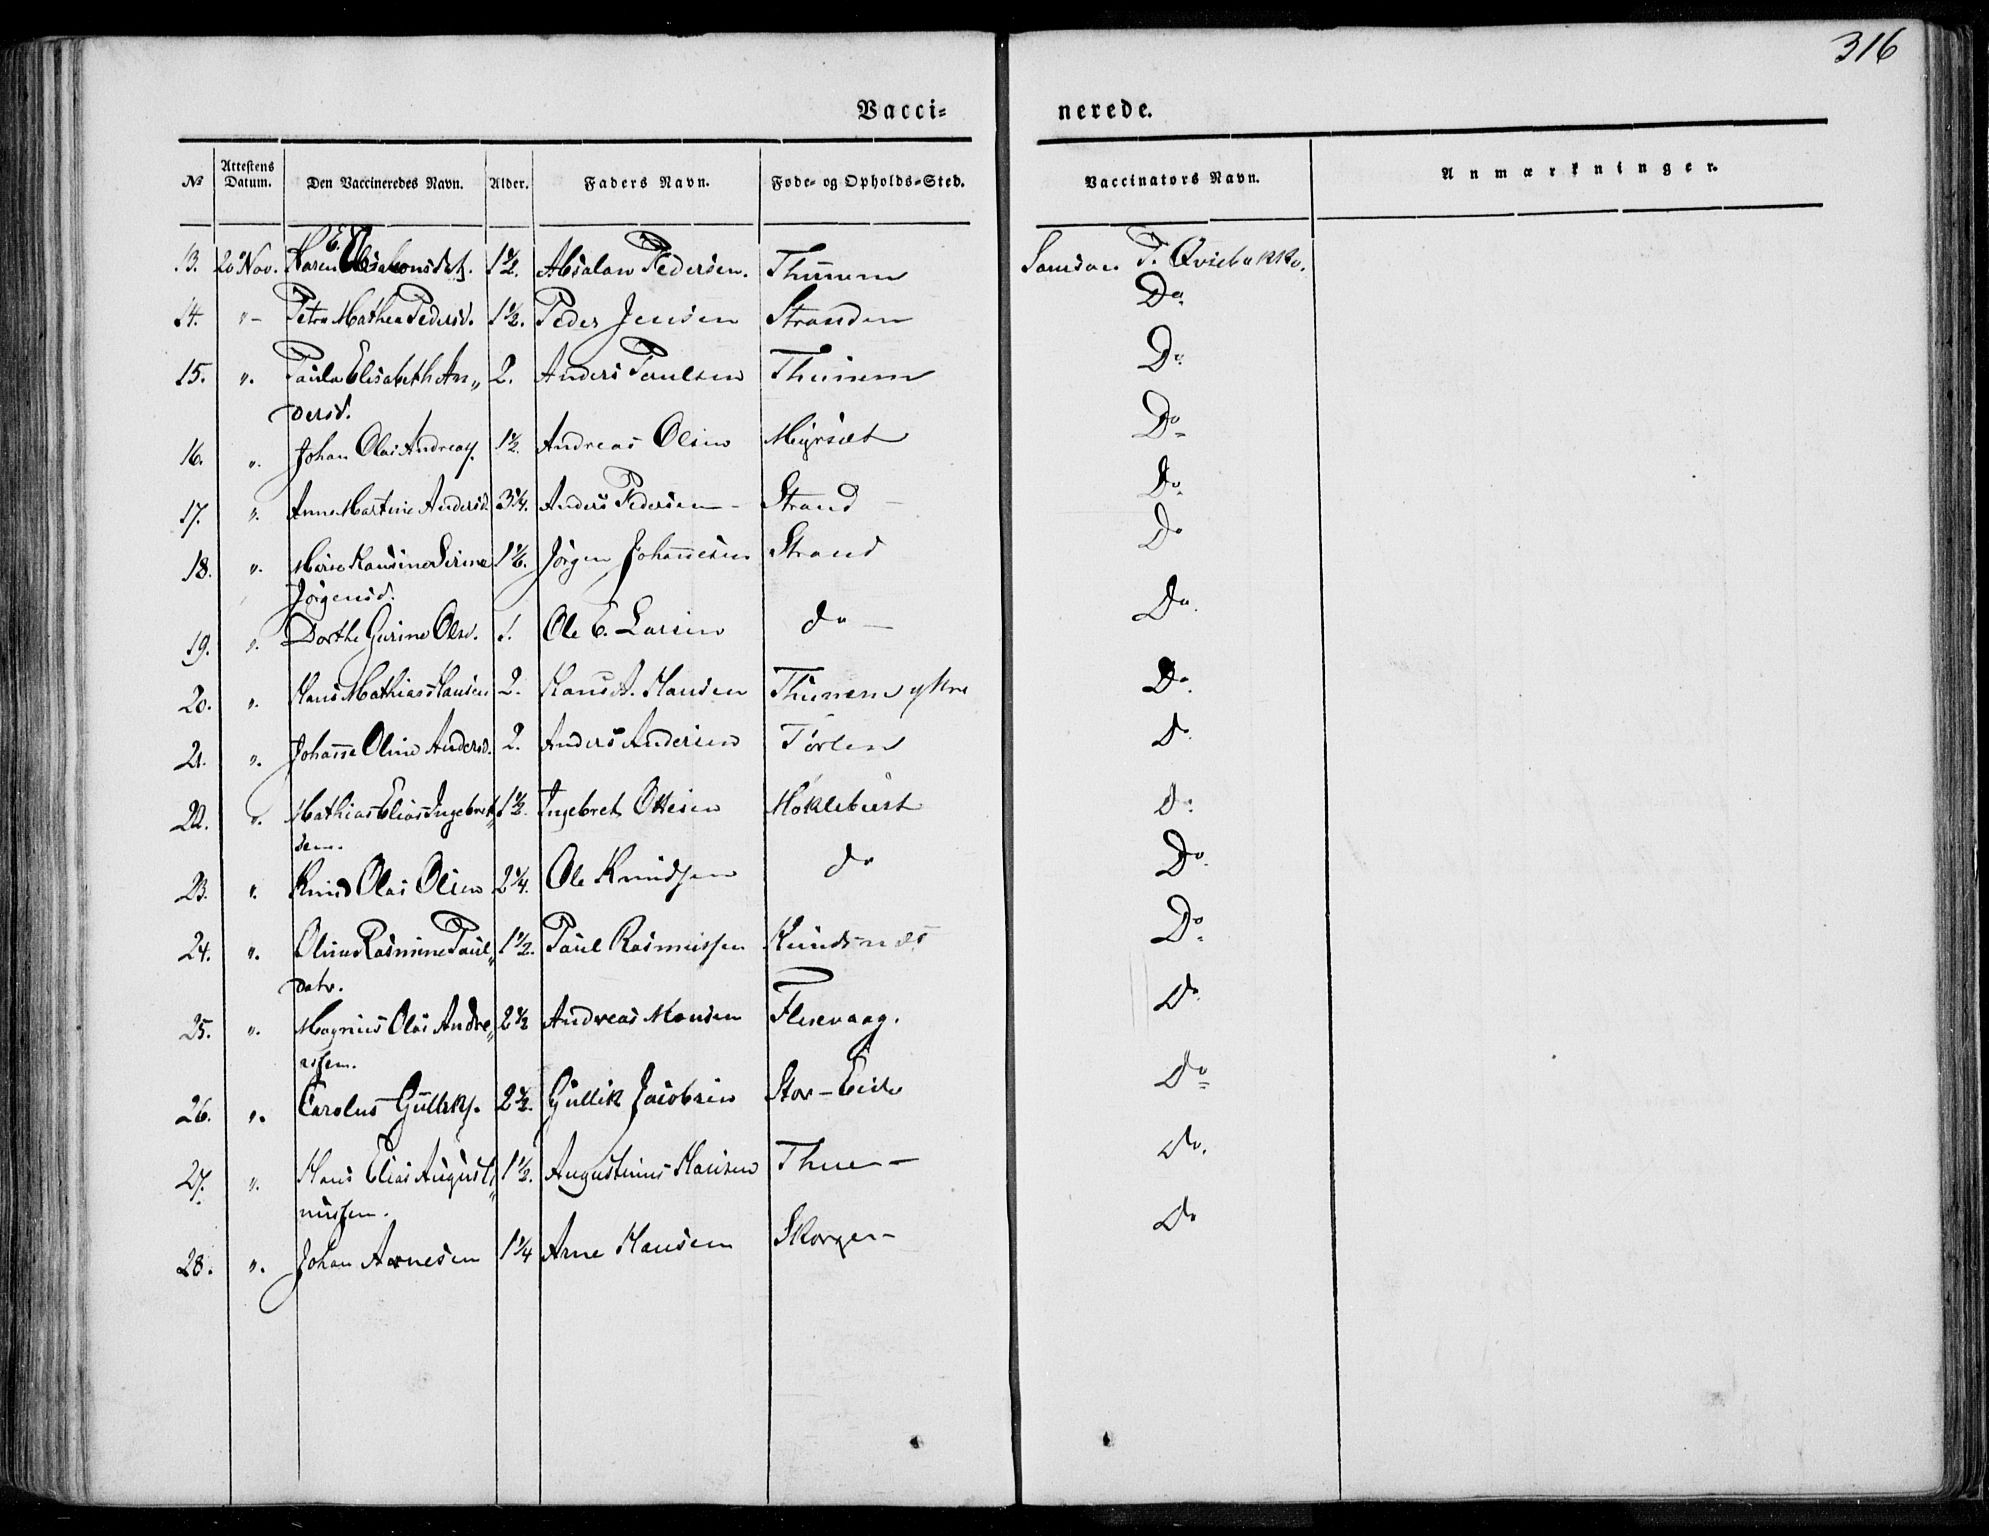 316
Vacci=nerede.
№ Attestens Datum. Den Vaccineredes Navn. Alder. Faders Navn. Føde= og Opholds=Sted. Vaccinators Navn. Anmærkninger.
13. 20 Nov. Karen E. Absalonsdt. 1½. Absalon Pedersen. Thunem Samson T. Qviebakke.
14. "- Petra Mathea Pedersd. 1½. Peder Jensen Stranden Do.
15. ". Paula Elisabeth An„ 2. Anders Paulsen Thunem Do.
dersd.
16. ". Johan Olai Andreas. 1½. Andreas Olsen Myrsæt Do
17. ". Anne Martine Andersd. 3¼. Anders Pedersen - Strand - Do.
18. ". Hansine Serine Jørgen Johannesen Strand Do
Jørgensd.
19. ". Dorthe Gurine Olsd. 1. Ole E. Larsen do - Do.
20. ". Hans Mathias Hansen 2. Hans A. Hansen Thunem ykre Do.
21. ". Johanne Oline Andersd. 2. Anders Andersen Tørlen D.
22. ". Mathias Elias Ingebret„ 1½. Ingebret Ottesen Høklebust D.
sen.
23. ". Knud Olai Olsen 2¼. Ole Knudsen do Do.
24. ". Oline Rasmine Paul„ 1½. Paul Rasmussen Knudsnæs Do.
datr.
25. ". Magnus Olai Andre„ 2½ Andreas Monsen Flisevaag. Do.
assen.
26. ". Carolus Gulliks. 2½. Gullik Jacobsen Stor-Eide Do
27. ". Hans Elias Augusti„ 1½. Augustinus Hansen Thue - Do.
nussen.
28. ". Johan Arnesen 1¼ Arne Hansen Skorgen - Do